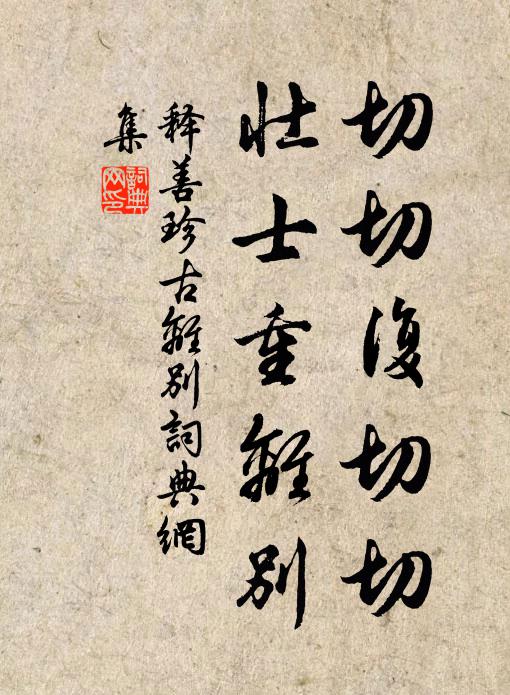 切切復切切
壯士重離別
释善珍古離別詞典網
集
詞典
网印